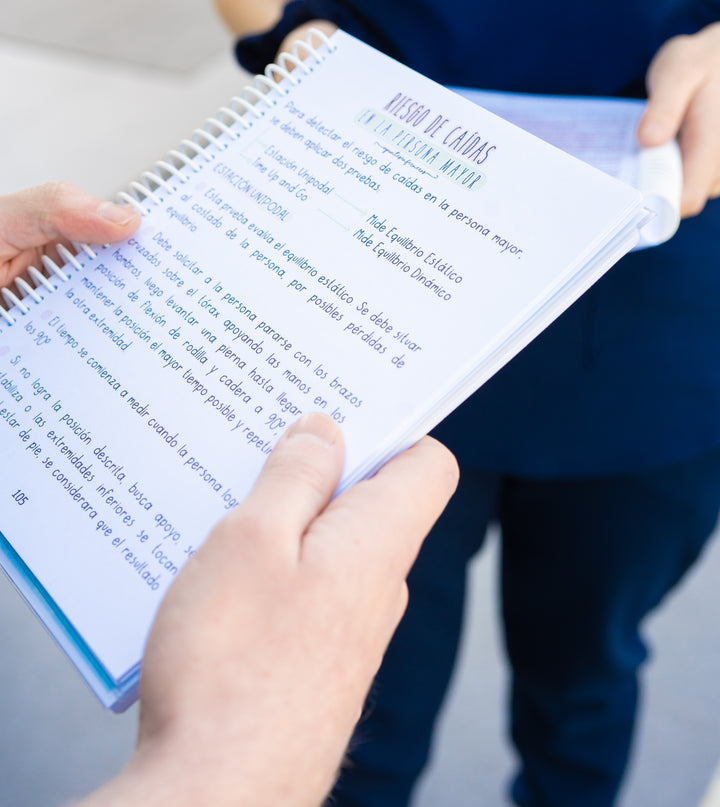 RIESGO DE CAÍDAS
EN LA PERSONA MAYOR
Para detectar el riesgo de caídas en la persona mayor,
se deben aplicar dos pruebas:
Estación Unipodal → Mide Equilibrio Estático
Time Up and Go → Mide Equilibrio Dinámico
ESTACIÓN UNIPODAL
Esta prueba evalúa el equilibrio estático. Se debe situar
al costado de la persona, por posibles pérdidas de
equilibrio.
Debe solicitar a la persona pararse con los brazos
cruzados sobre el tórax apoyando las manos en los
hombros, luego levantar una pierna hasta llegar
posición de flexión de rodilla y cadera a 90º
mantener la posición el mayor tiempo posible y repetir
la otra extremidad.
El tiempo se comienza a medir cuando la persona logra
los 90º
Si no logra la posición descrita, busca apoyo, se
o las extremidades inferiores se tocan
estar de pie, se considerara que el resultado
105